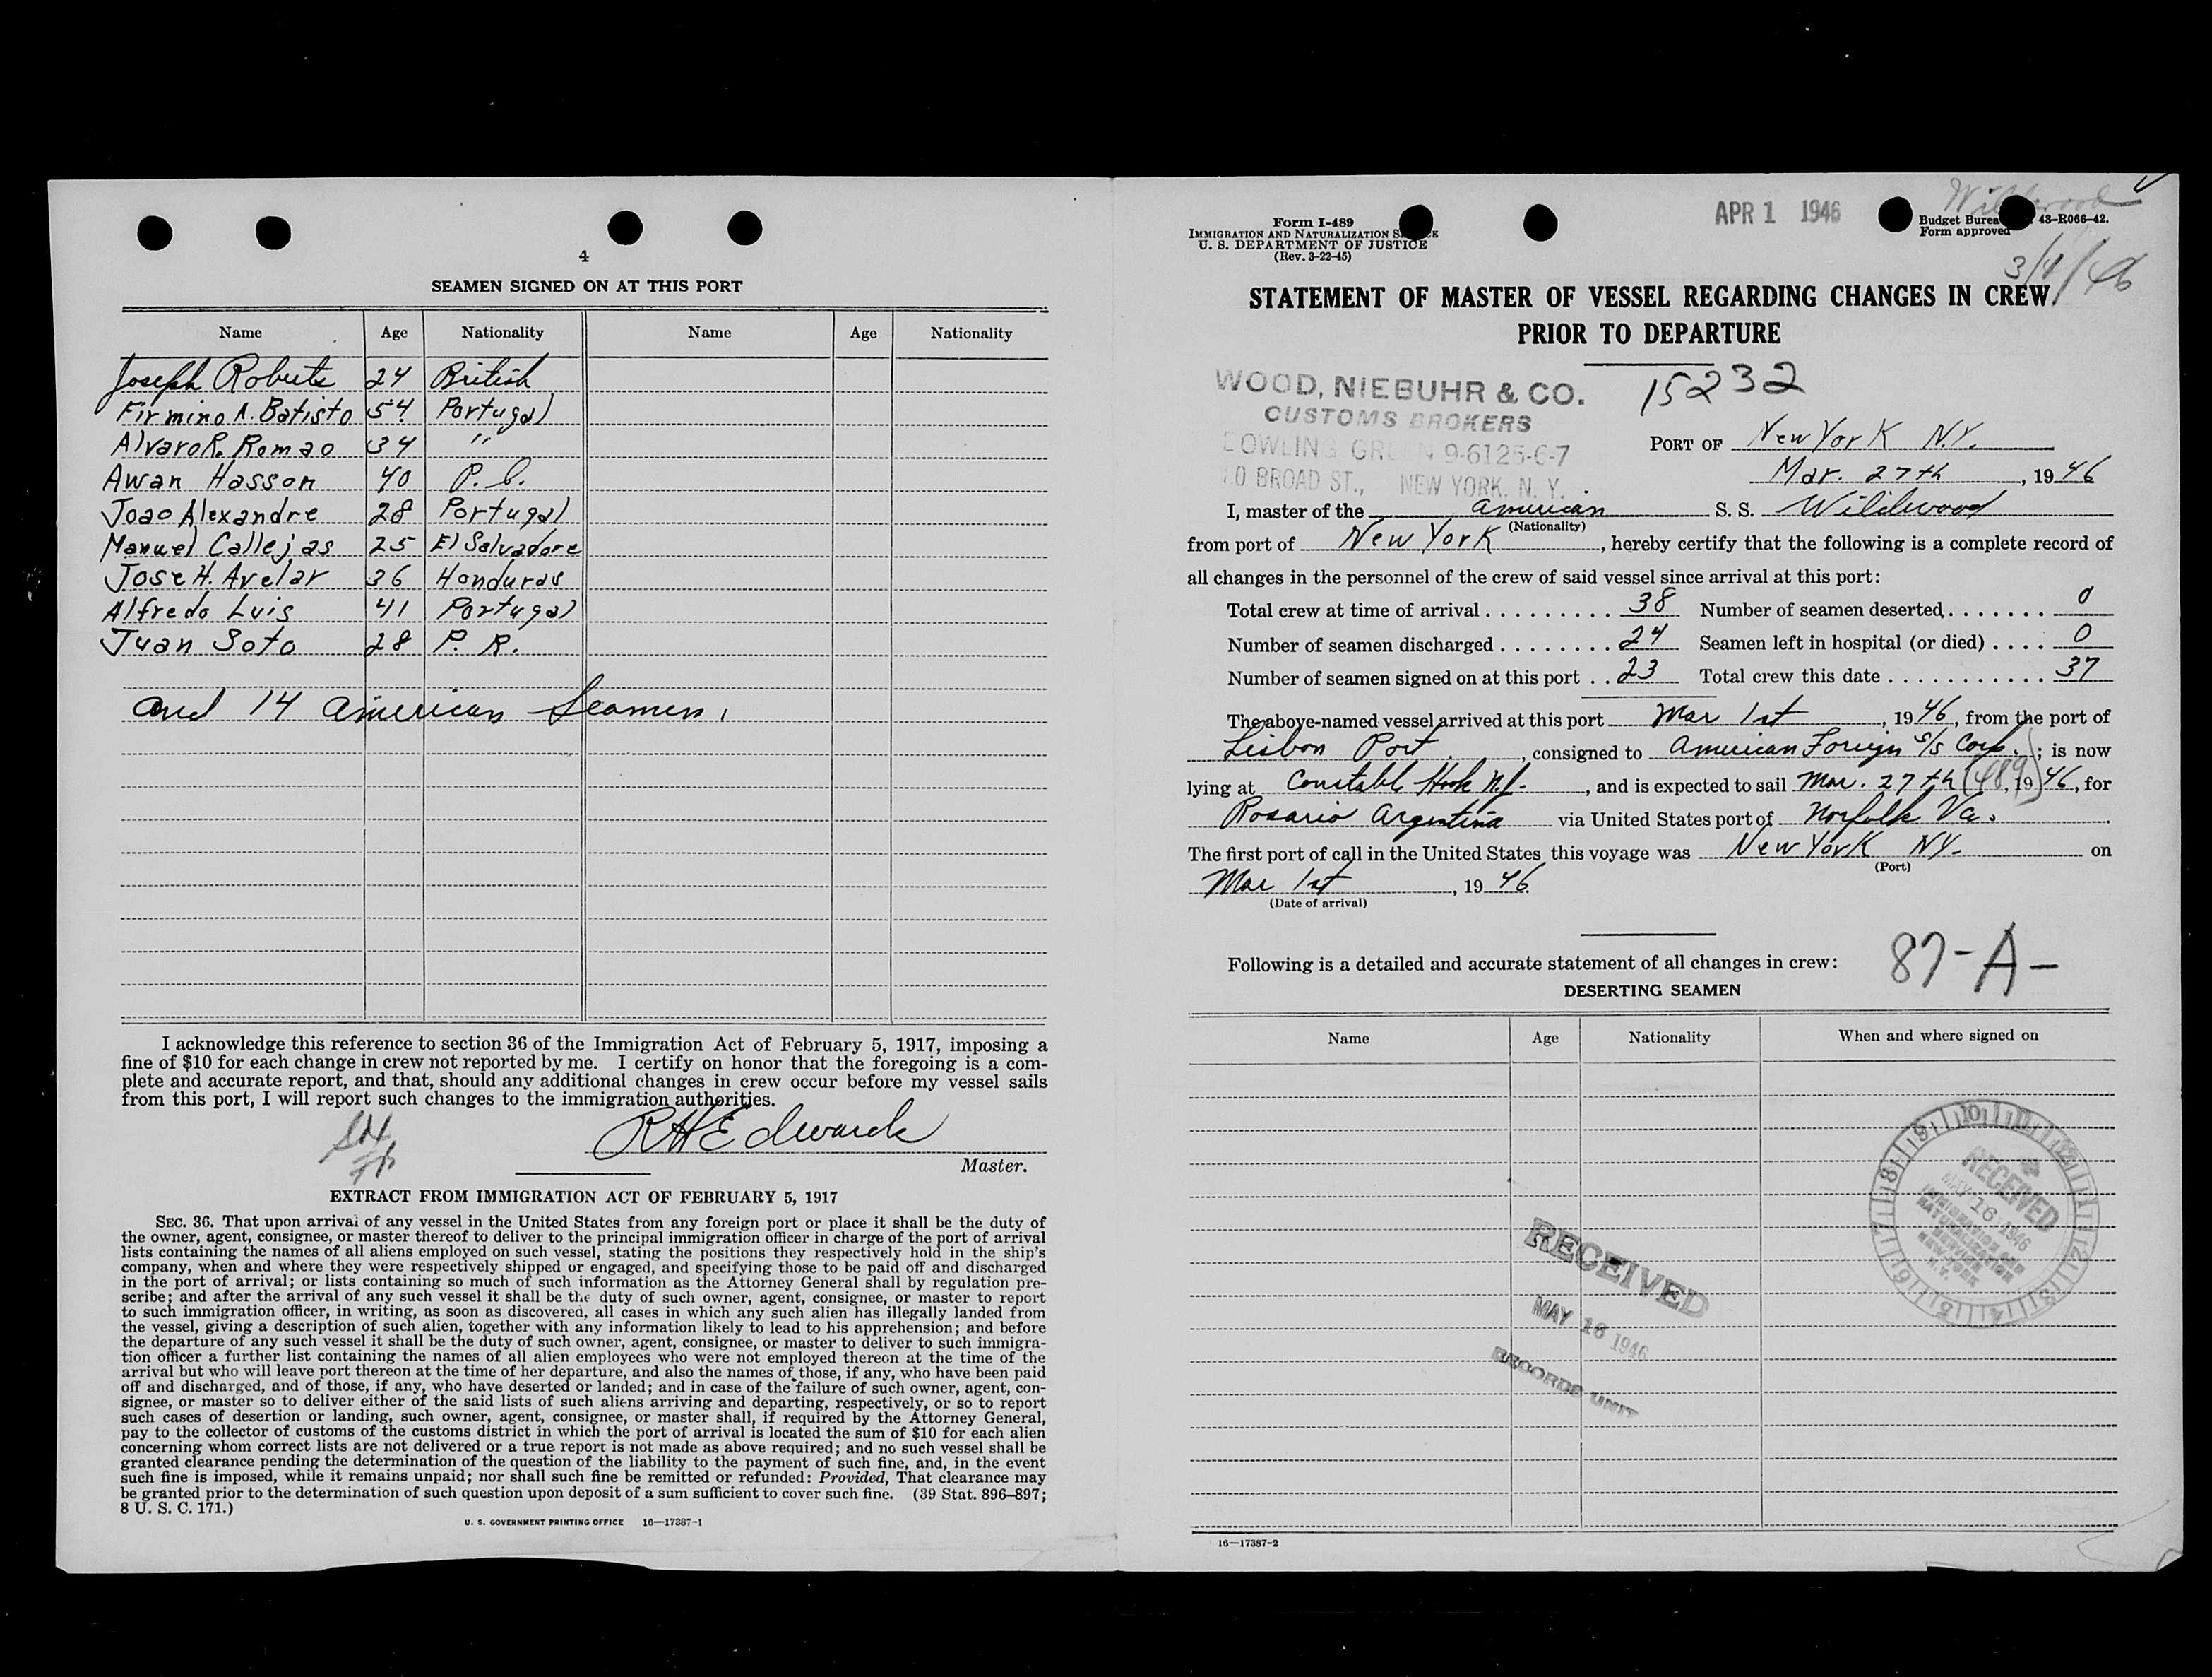 4
SEAMEN SIGNED ON AT THIS PORT
Name Age Nationality Name Age Nationality
Joseph Roberts 24 British
Firmino A. Batisto 54 Portugal
Alvaro R. Romao 34 "
Awan Hasson 40
Joao Alexandre 28 Portugal
Manuel Callejas 25 El Salvadore
Jose H. Avelar 36 Honduras
Alfredo Luis 41 Portugal
Juan Soto 28 P. R.
and 14 American Seamen,
I acknowledge this reference to section 36 of the Immigration Act of February 5, 1917, imposing a
fine of $10 for each change in crew not reported by me. I certify on honor that the foregoing is a com-
plete and accurate report, and that, should any additional changes in crew occur before my vessel sails
from this port, I will report such changes to the immigration authorities.
RH Edwards
Master.
EXTRACT FROM IMMIGRATION ACT OF FEBRUARY 5, 1917
SEC. 36. That upon arrival of any vessel in the United States from any foreign port or place it shall be the duty of
the owner, agent, consignee, or master thereof to deliver to the principal immigration officer in charge of the port of arrival
lists containing the names of all aliens employed on such vessel, stating the positions they respectively hold in the ship's
company, when and where they were respectively shipped or engaged, and specifying those to be paid off and discharged
in the port of arrival; or lists containing so much of such information as the Attorney General shall by regulation pre-
scribe; and after the arrival of any such vessel it shall be the duty of such owner, agent, consignee, or master to report
to such immigration officer, in writing, as soon as discovered, all cases in which any such alien has illegally landed from
the vessel, giving a description of such alien, together with any information likely to lead to his apprehension; and before
the departure of any such vessel it shall be the duty of such owner, agent, consignee, or master to deliver to such immigra-
tion officer a further list containing the names of all alien employees who were not employed thereon at the time of the
arrival but who will leave port thereon at the time of her departure, and also the names of those, if any, who have been paid
off and discharged, and of those, if any, who have deserted or landed; and in case of the failure of such owner, agent, con-
signee, or master so to deliver either of the said lists of such aliens arriving and departing, respectively, or so to report
such cases of desertion or landing, such owner, agent, consignee, or master shall, if required by the Attorney General,
pay to the collector of customs of the customs district in which the port of arrival is located the sum of $10 for each alien
concerning whom correct lists are not delivered or a true report is not made as above required; and no such vessel shall be
granted clearance pending the determination of the question of the liability to the payment of such fine, and, in the event
such fine is imposed, while it remains unpaid; nor shall such fine be remitted or refunded: Provided, That clearance may
be granted prior to the determination of such question upon deposit of a sum sufficient to cover such fine. (39 Stat. 896–897;
8 U. S. C. 171.)
U. S. GOVERNMENT PRINTING OFFICE 16—17387-1
Wildwood
Form I-489
IMMIGRATION AND NATURALIZATION
U. S. DEPARTMENT OF JUSTICE
(Rev. 3-22-45)
APR 1 1946
Budget Burea 43–R066–42.
Form approved
3/1/46
STATEMENT OF MASTER OF VESSEL REGARDING CHANGES IN CREW
PRIOR TO DEPARTURE
WOOD, NIEBUHR & CO.
CUSTOMS BROKERS
BOWLING GREEN 9-6125-6-7
BROAD ST., NEW YORK, N. Y.
15232
PORT OF New York N.Y.
Mar. 27th, 1946
I, master of the American S. S. Wildwood
(Nationality)
from port of New York, hereby certify that the following is a complete record of
all changes in the personnel of the crew of said vessel since arrival at this port:
Total crew at time of arrival 38 Number of seamen deserted 0
Number of seamen discharged 24 Seamen left in hospital (or died) 0
Number of seamen signed on at this port 23 Total crew this date 37
The above-named vessel arrived at this port Mar 1st, 1946, from the port of
Lisbon Port, consigned to American Foreign S/S Corp.; is now
lying at Constable Hook N.J., and is expected to sail Mar. 27th (489), 1946, for
Rosario Argentina via United States port of Norfolk Va.
The first port of call in the United States this voyage was New York NY. on
(Port)
Mar 1st, 1946
(Date of arrival)
Following is a detailed and accurate statement of all changes in crew:
87-A-
DESERTING SEAMEN
Name Age Nationality When and where signed on
RECEIVED
MAY 16 1946
IMMIGRATION AND
NATURALIZATION
SERVICE
NEW YORK
N.Y.
RECEIVED
MAY 16 1946
RECORDS UNIT
16—17387-2